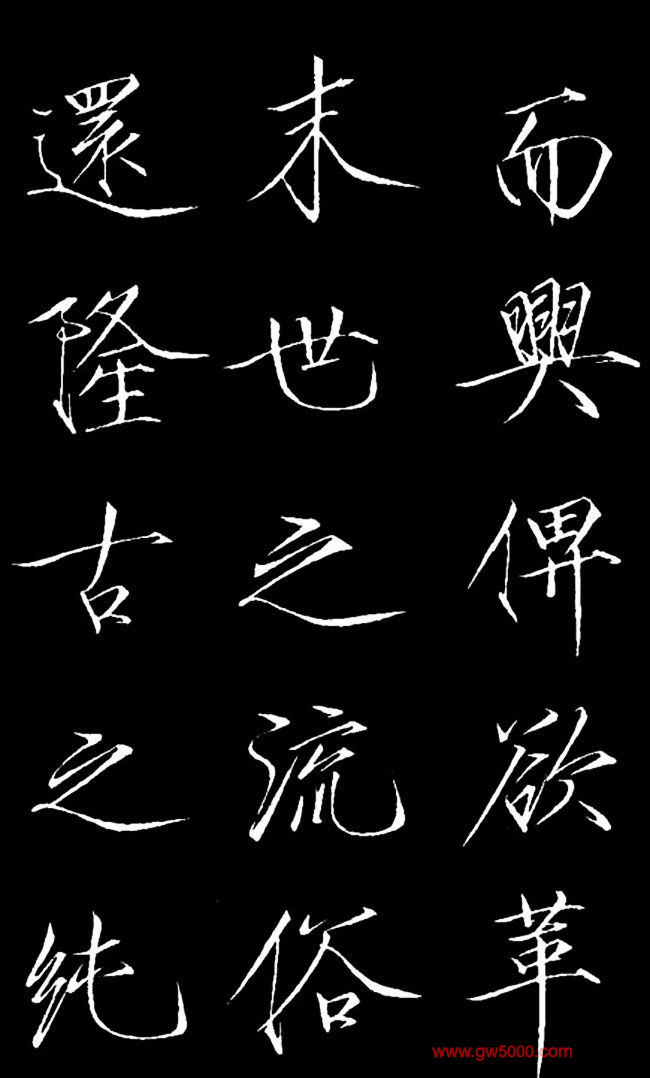 而興俾欲革
末世之流俗
還隆古之純
www.gw5000.com